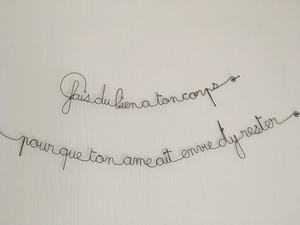 fais du bien a ton corps
pour que ton ame ait envie d'y rester